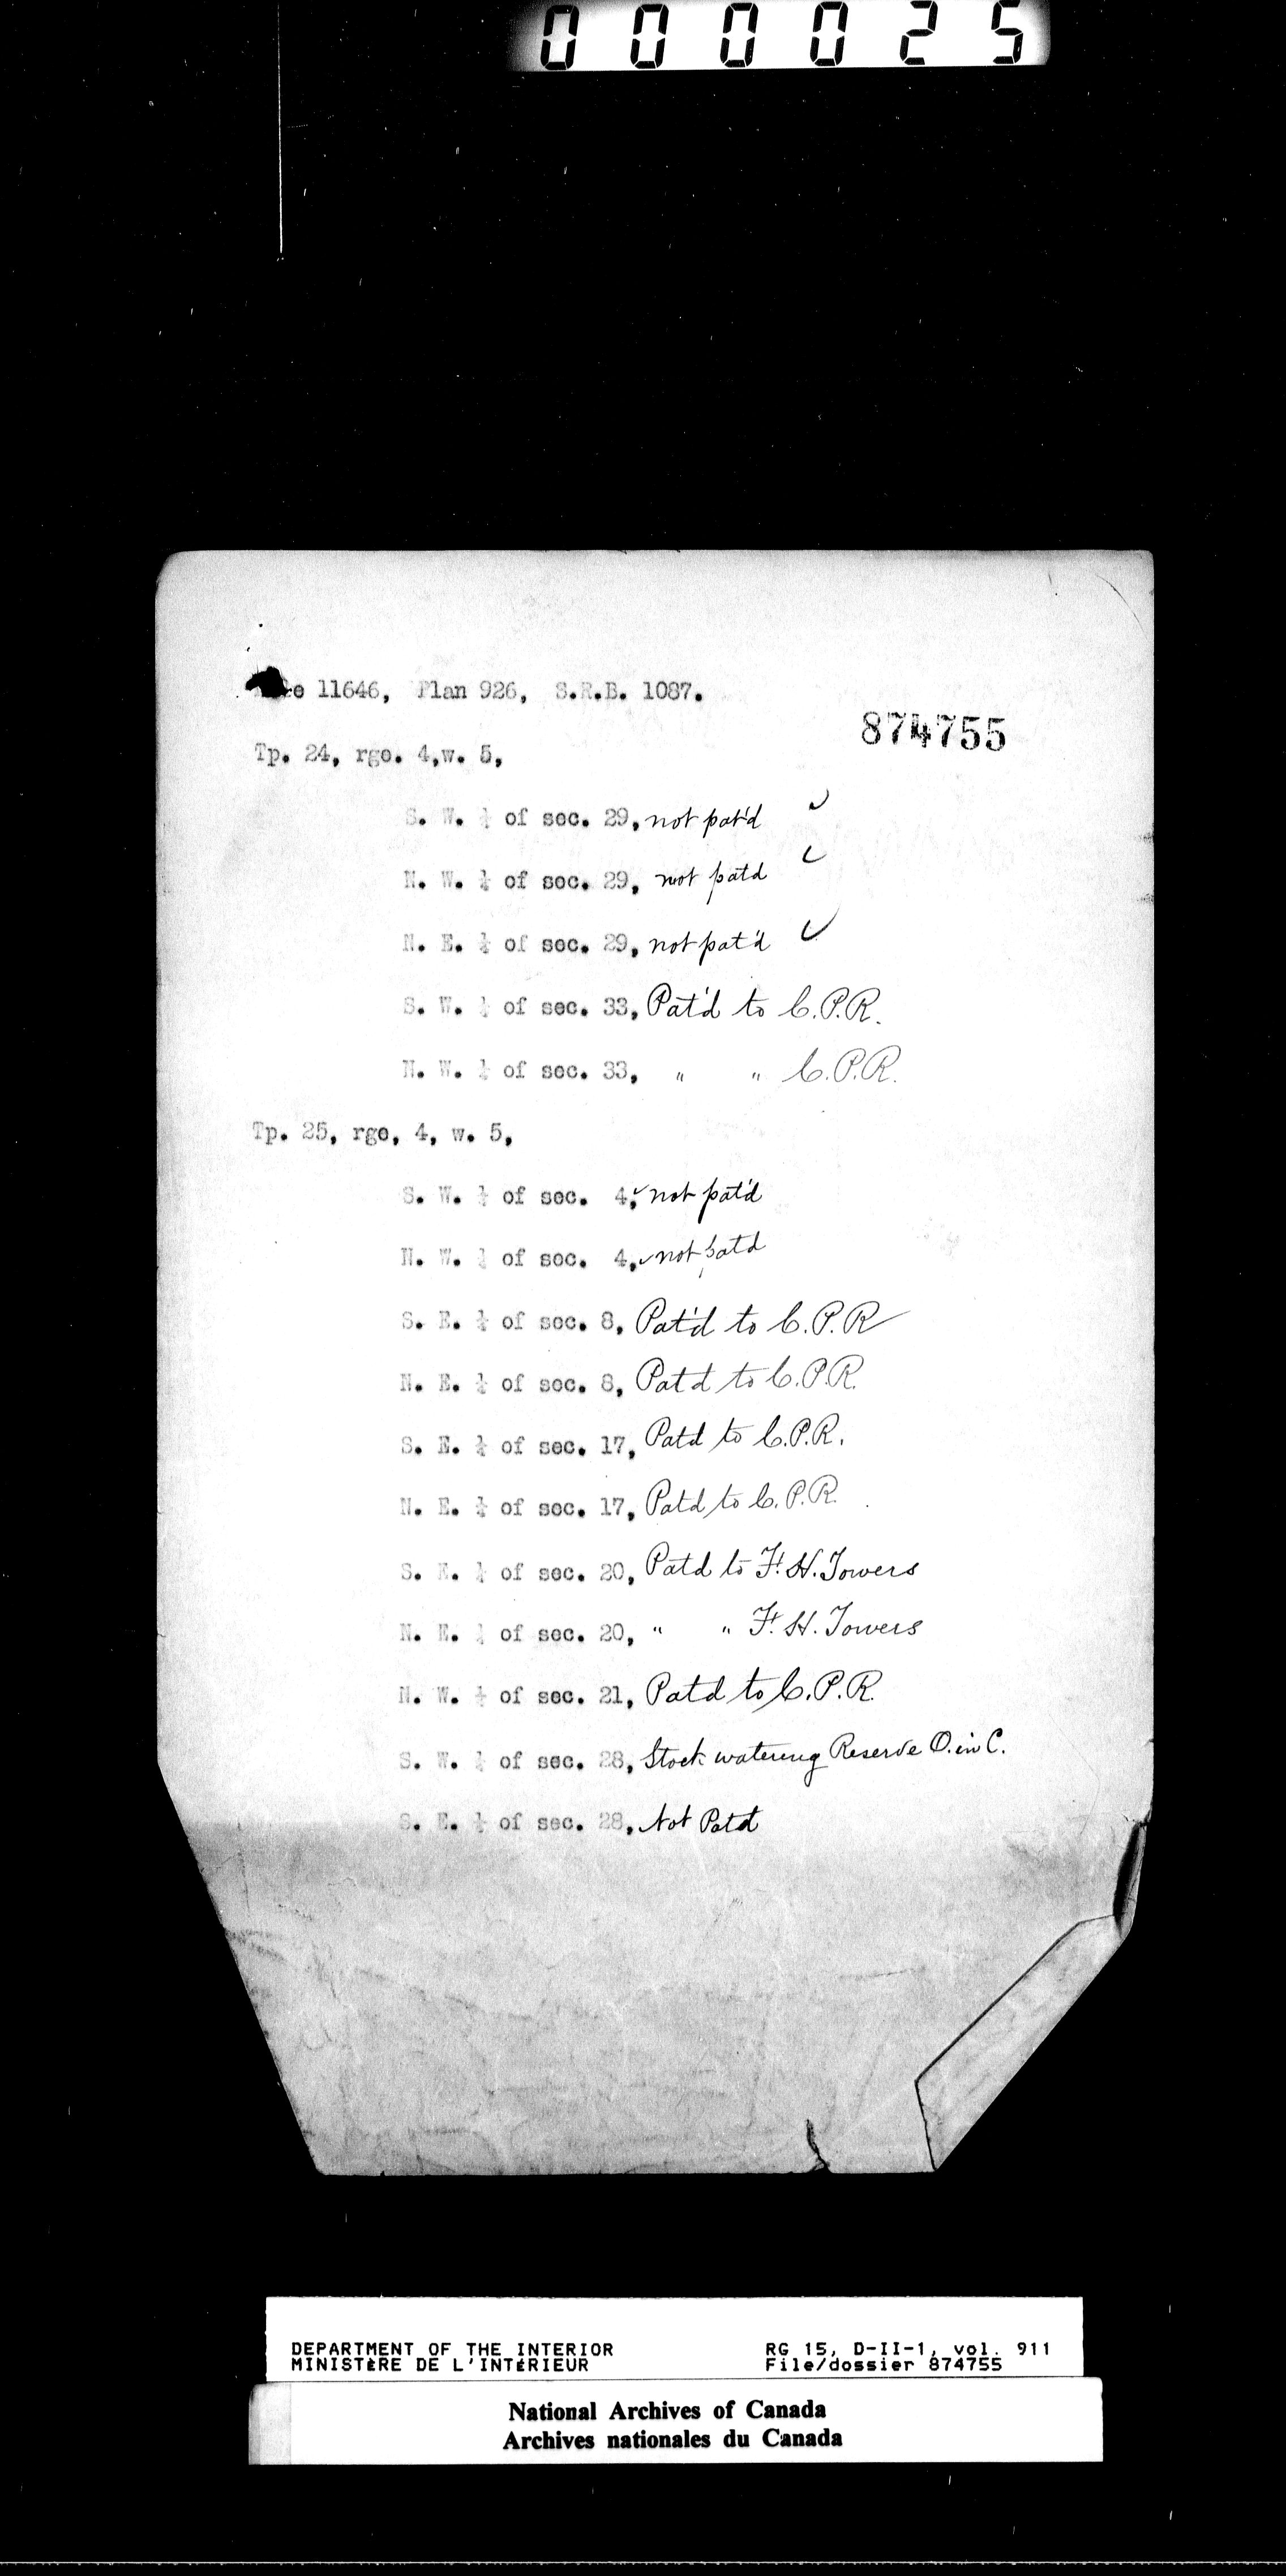 000025
11646, Plan 926, S.R.B. 1087.
874755
Tp. 24, rge. 4, w. 5,
S. W. ¼ of sec. 29, not pat'd ✓
N. W. ¼ of sec. 29, not patd ✓
N. E. ¼ of sec. 29, not pat'd ✓
S. W. ¼ of sec. 33, Pat'd to C.P.R.
N. W. ¼ of sec. 33, " " C.P.R.
Tp. 25, rge, 4, w. 5,
S. W. ¼ of sec. 4, ✓ not pat'd
N. W. ¼ of sec. 4, ✓ not patd
S. E. ¼ of sec. 8, Pat'd to C.P.R
N. E. ¼ of sec. 8, Patd to C.P.R.
S. E. ¼ of sec. 17, Patd to C.P.R.
N. E. ¼ of sec. 17, Patd to C.P.R.
S. E. ¼ of sec. 20, Patd to F. H. Towers
N. E. ¼ of sec. 20, " " F. H. Towers
N. W. ¼ of sec. 21, Patd to C.P.R.
S. W. ¼ of sec. 28, Stock watering Reserve O. in C.
S. E. ¼ of sec. 28, Not Patd
DEPARTMENT OF THE INTERIOR RG 15, D-II-1, vol. 911
MINISTÈRE DE L'INTÉRIEUR File/dossier 874755
National Archives of Canada
Archives nationales du Canada